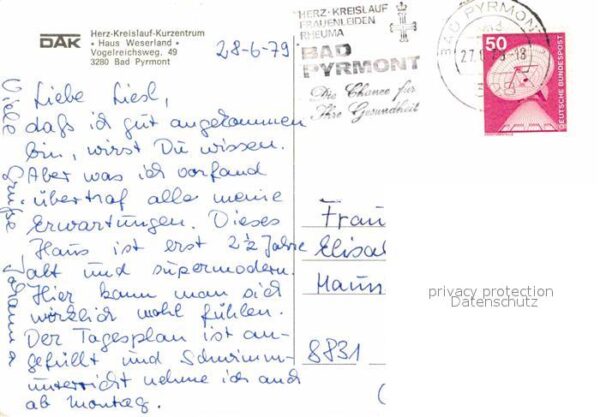 DAK
Herz-Kreislauf-Kurzentrum
• Haus Weserland •
Vogelreichsweg, 49
3280 Bad Pyrmont
28-6-79
HERZ-KREISLAUF
FRAUENLEIDEN
RHEUMA
BAD
PYRMONT
Die Chance für
Ihre Gesundheit
BAD PYRMONT
50
DEUTSCHE BUNDESPOST
Liebe Liesl,
daß ich gut angekommen
bin, wirst Du wissen.
Aber was ich vorfand
übertraf alle meine
Erwartungen. Dieses
Haus ist erst 2½ Jahre
alt und supermodern.
Hier kann man sich
wirklich wohl fühlen.
Der Tagesplan ist an-
gefüllt und Schwimm-
unterricht nehme ich auch
ab Montag.
Viele Grüße Johanna
Frau
Elisa
8831
privacy protection
Datenschutz